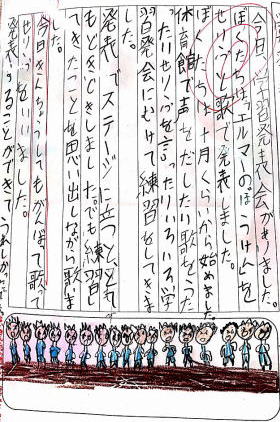 今日、学習発表会がありました。
ぼくたちは、「エルマーのぼうけん」を
せりふと歌で発表しました。
ぼくたちは十月くらいから始めました。
体育館で声をだしたり歌をうた
ったりせりふを言ったりいろいろ学
習発会にむけて練習をしてきま
した。
発表でステージに立つと
もどきどきしました。でも練習し
てきたことを思い出しながら歌ま
した。
今日きんちょうしてもがんばて歌で
せりふをいいました。
発表することができてうれしか